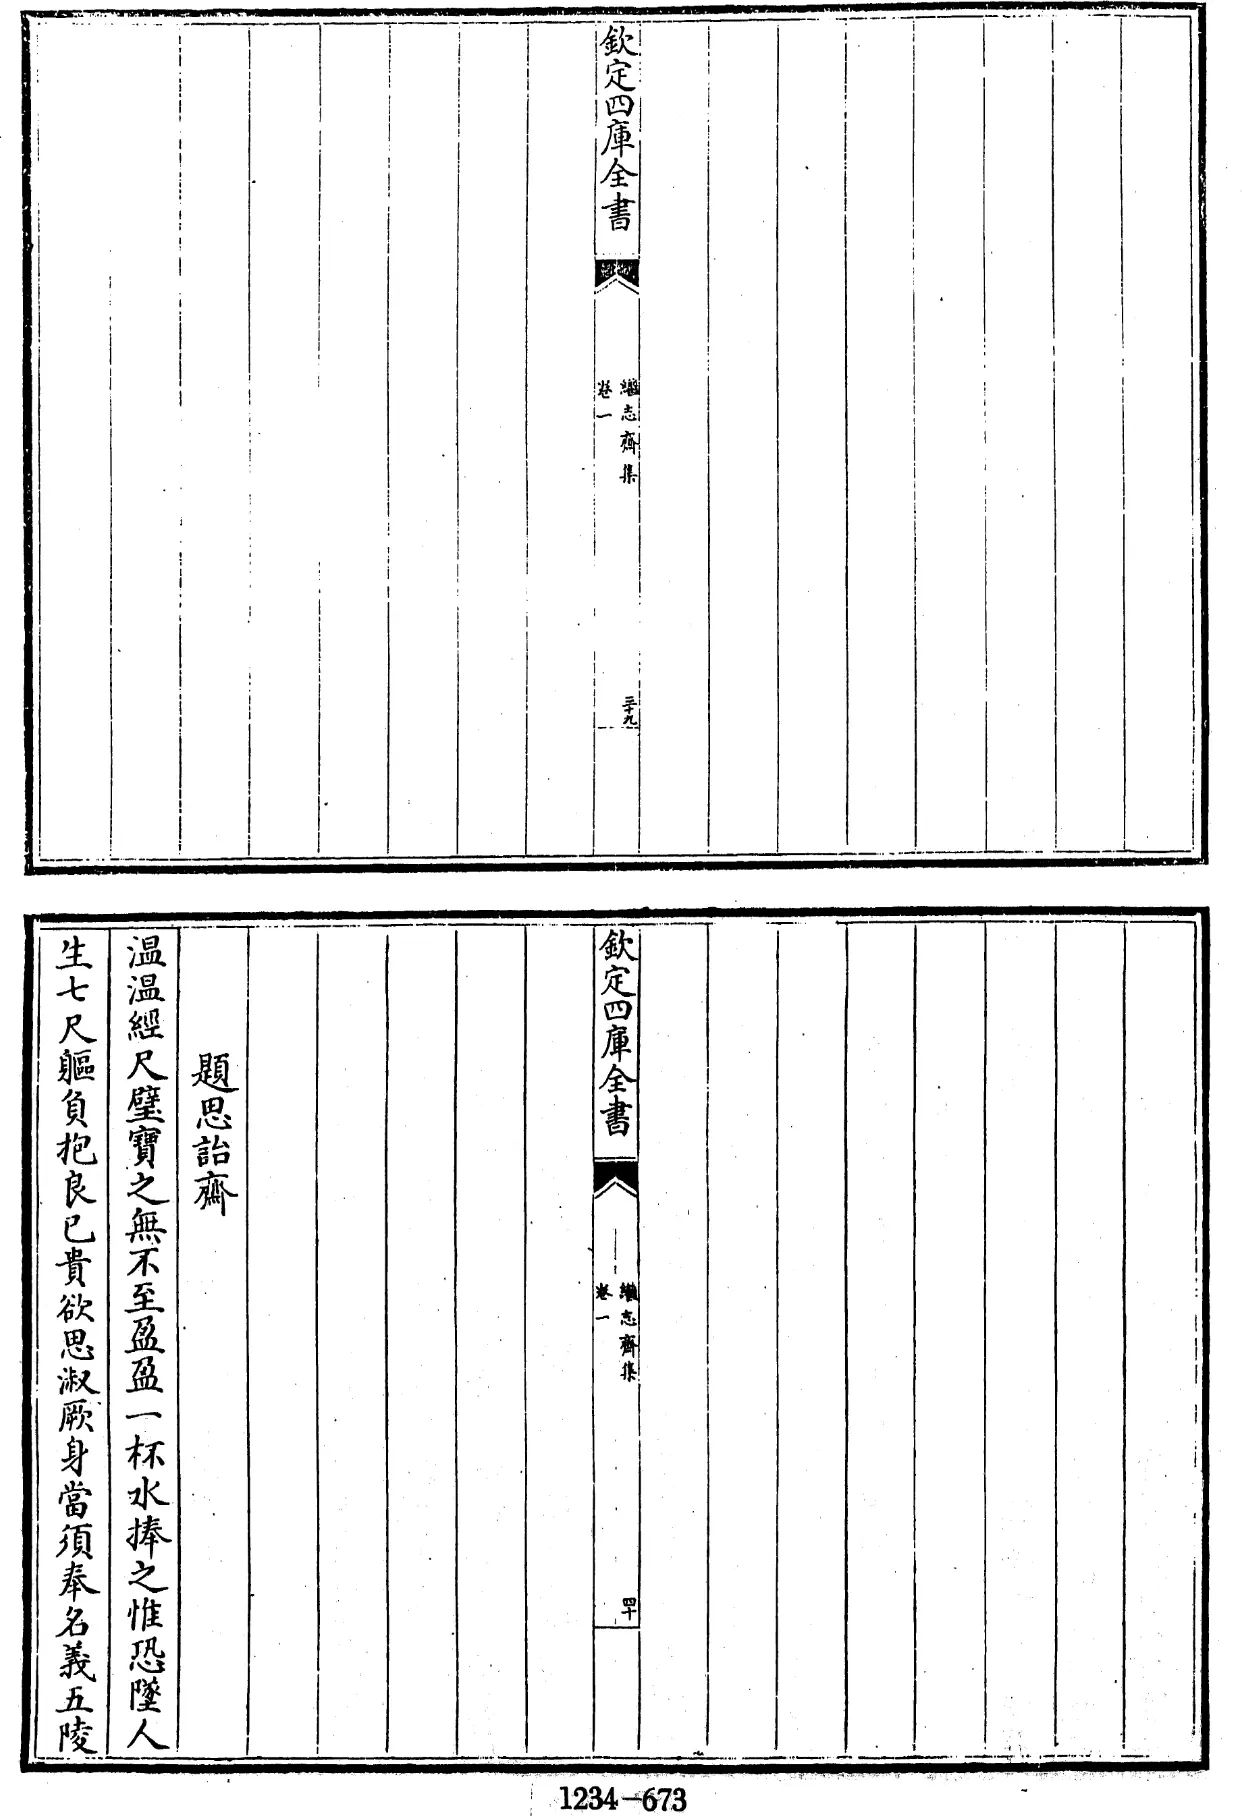 欽定四庫全書
繼志齋集
卷一
三十九
欽定四庫全書
繼志齋集
卷一
四十
題思詒齋
溫溫經尺璧寶之無不至盈盈一杯水捧之惟恐墜人
生七尺軀負抱良已貴欲思淑厥身當須奉名義五陵
1234-673